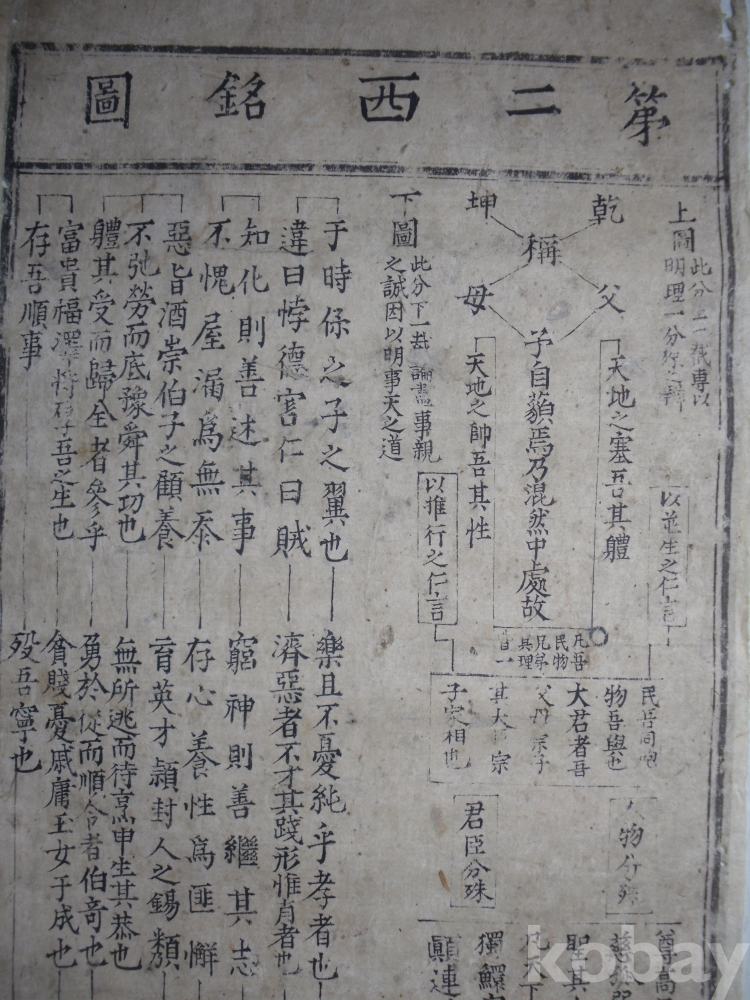 第二西銘圖
上圖
此分上一截專以
明理一分殊之辨
乾父
坤母
稱
予自藐焉乃混然中處故
天地之塞吾其體
天地之帥吾其性
以並生之仁言
以推行之仁言
凡吾
民物
兄弟
其理
一
民吾同胞
物吾與也
大君者吾
父母宗子
其大 宗
子家相也
人物分殊
君臣分殊
尊高
聖其
凡天下
獨鰥
顚連
下圖
此分下一截論盡事親
之誠因以明事天之道
于時保之子之翼也
樂且不憂純乎孝者也
違曰悖德害仁曰賊
濟惡者不才其踐形惟肖者也
知化則善述其事
窮神則善繼其志
不愧屋漏爲無忝
存心養性爲匪懈
惡旨酒崇伯子之顧養
育英才潁封人之錫類
不弛勞而底豫舜其功也
無所逃而待烹申生其恭也
體其受而歸全者參乎
勇於從而順令者伯奇也
富貴福澤將厚吾之生也
貧賤憂戚庸玉女于成也
存吾順事
歿吾寧也
kobay